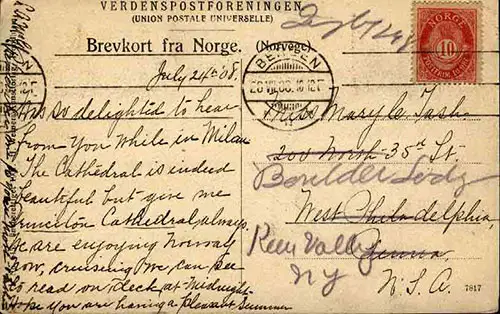 VERDENSPOSTFORENINGEN
(UNION POSTALE UNIVERSELLE)
Brevkort fra Norge. (Norvège)
NORGE
10
BERGEN
July 24th 08.
Am so delighted to hear
from you while in Milan
The Cathedral is indeed
beautiful but give me
Princeton Cathedral, always.
We are enjoying Norway
now, cruising. We can be
to read on deck at Midnight
Hope you are having a pleasant Summer
Miss Mary
200 North 35th St.
Boulder
West Philadelphia,
Keen Valley
Penna.
NY
U.S.A.
7817